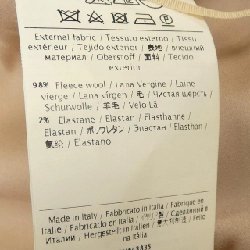 External fabric / Tessuto esterno / Tissu
extérieur / Tejido exterior / 表地 / внешний
материал / Oberstoff / 面料 / Tecido
98% Fleece wool / Lana Vergine / Laine
vierge / Lana virgen / 毛 / Чистая шерсть /
Schurwolle / 羊毛 / Velo Lã
2% Elastane / Elastan / Elasthanne /
Elastán / ポリウレタン / Эластан / Elasthan /
氨纶 / Elastano
Made in Italy / Fabbricato in Italia / Fabriqué en
Italie / Fabricado en Italia / イタリア製 / Сделанный в
Италии / Hergestellt in Italien / Fabricado
na Itália